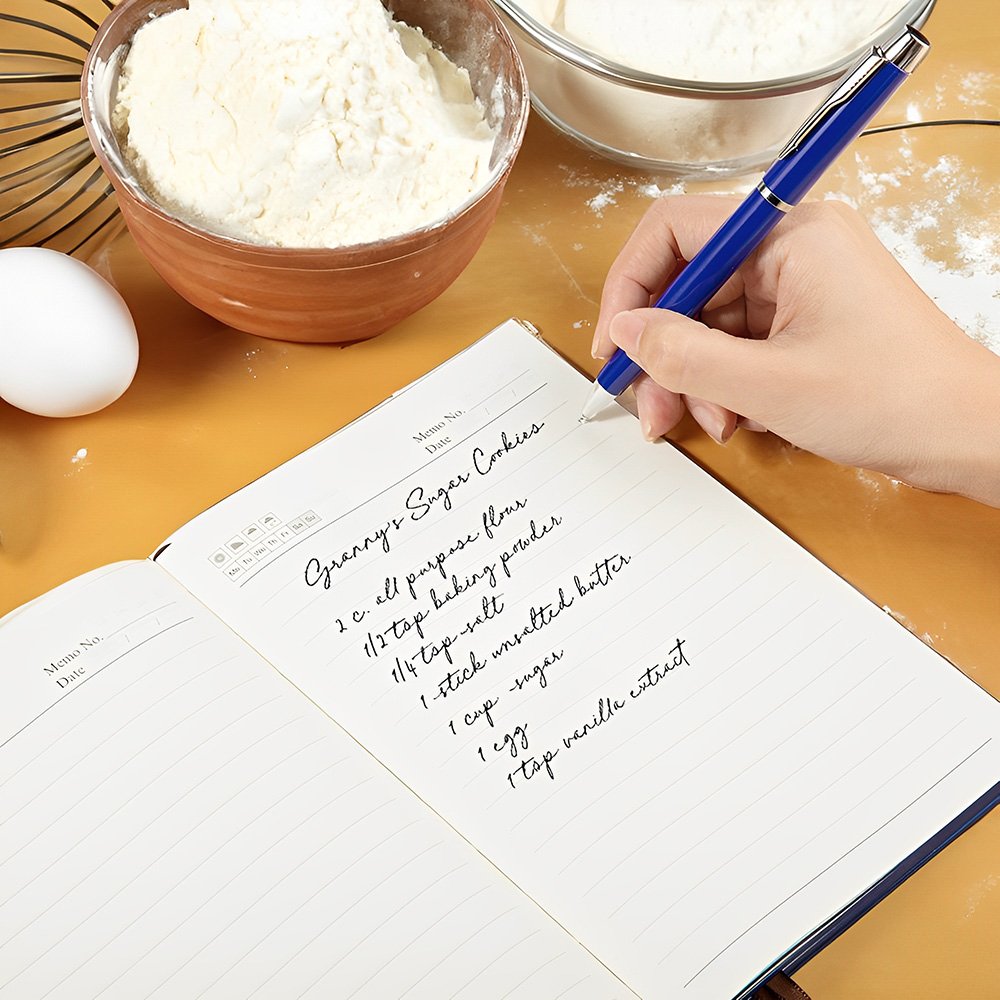 Memo No.
Date
Memo No.
Date
Mo Tu We Th Fr Sa Su
Granny's Sugar Cookies
2 c. all purpose flour
1/2 tsp baking powder
1/4 tsp salt
1 stick unsalted butter
1 cup sugar
1 egg
1 tsp vanilla extract